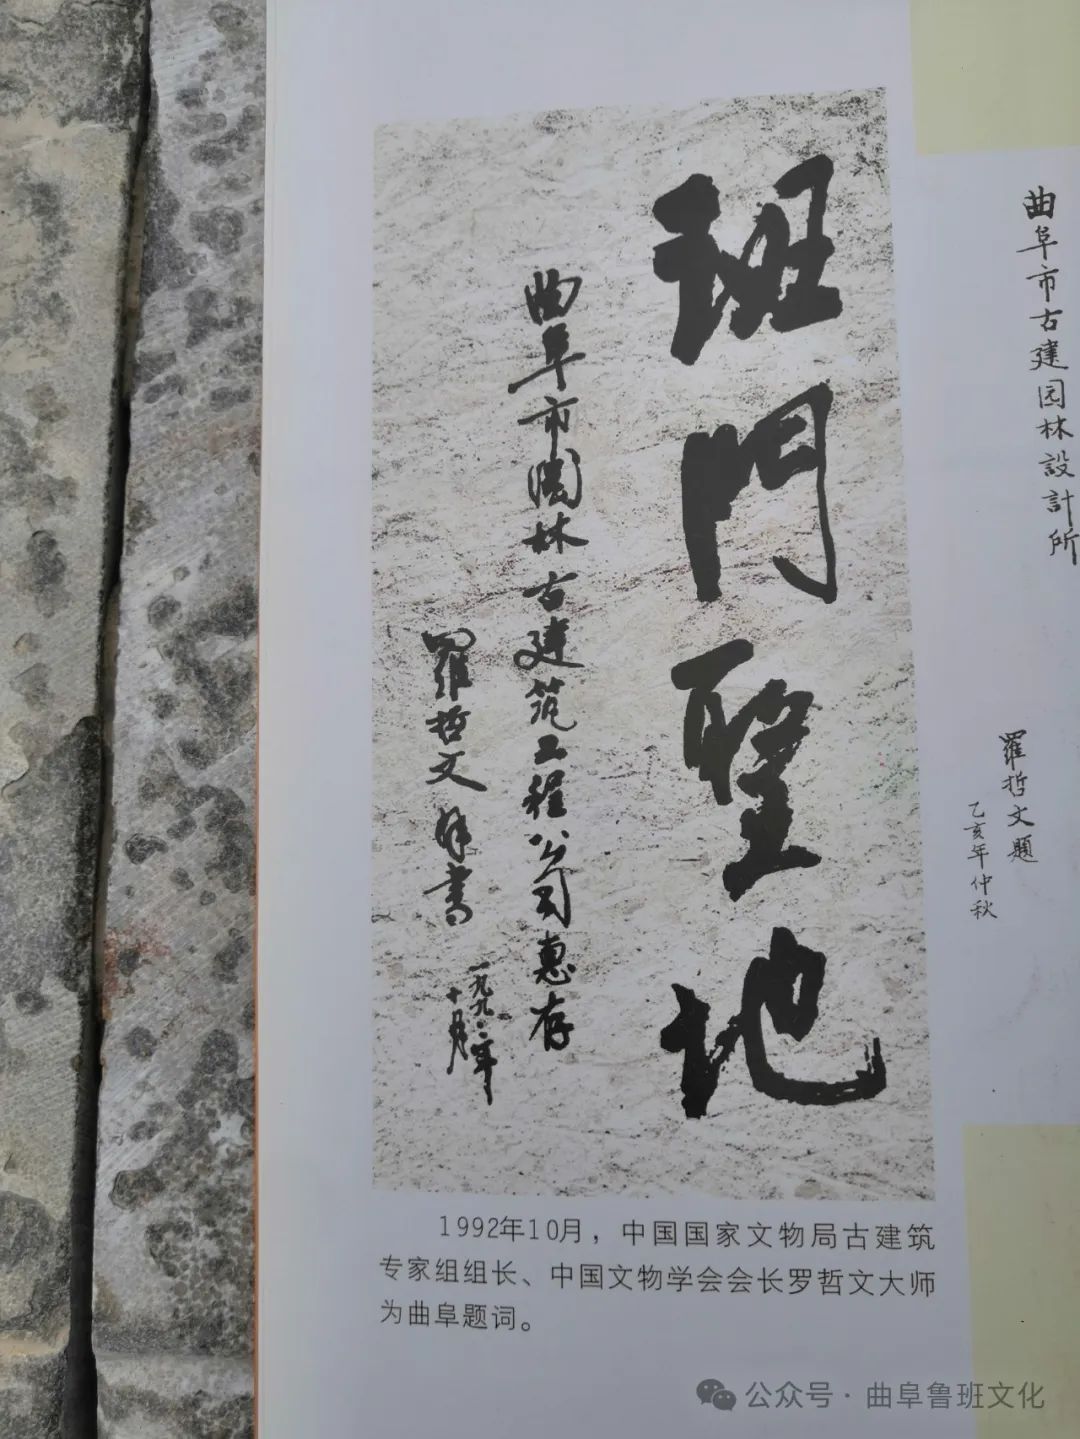 曲阜市古建园林設計所
羅哲文題
乙亥年仲秋
班門聖地
曲阜市園林古建筑工程公司惠存
羅哲文拜書
一九九二年
十月
1992年10月，中国国家文物局古建筑
专家组组长、中国文物学会会长罗哲文大师
为曲阜题词。
公众号·曲阜鲁班文化